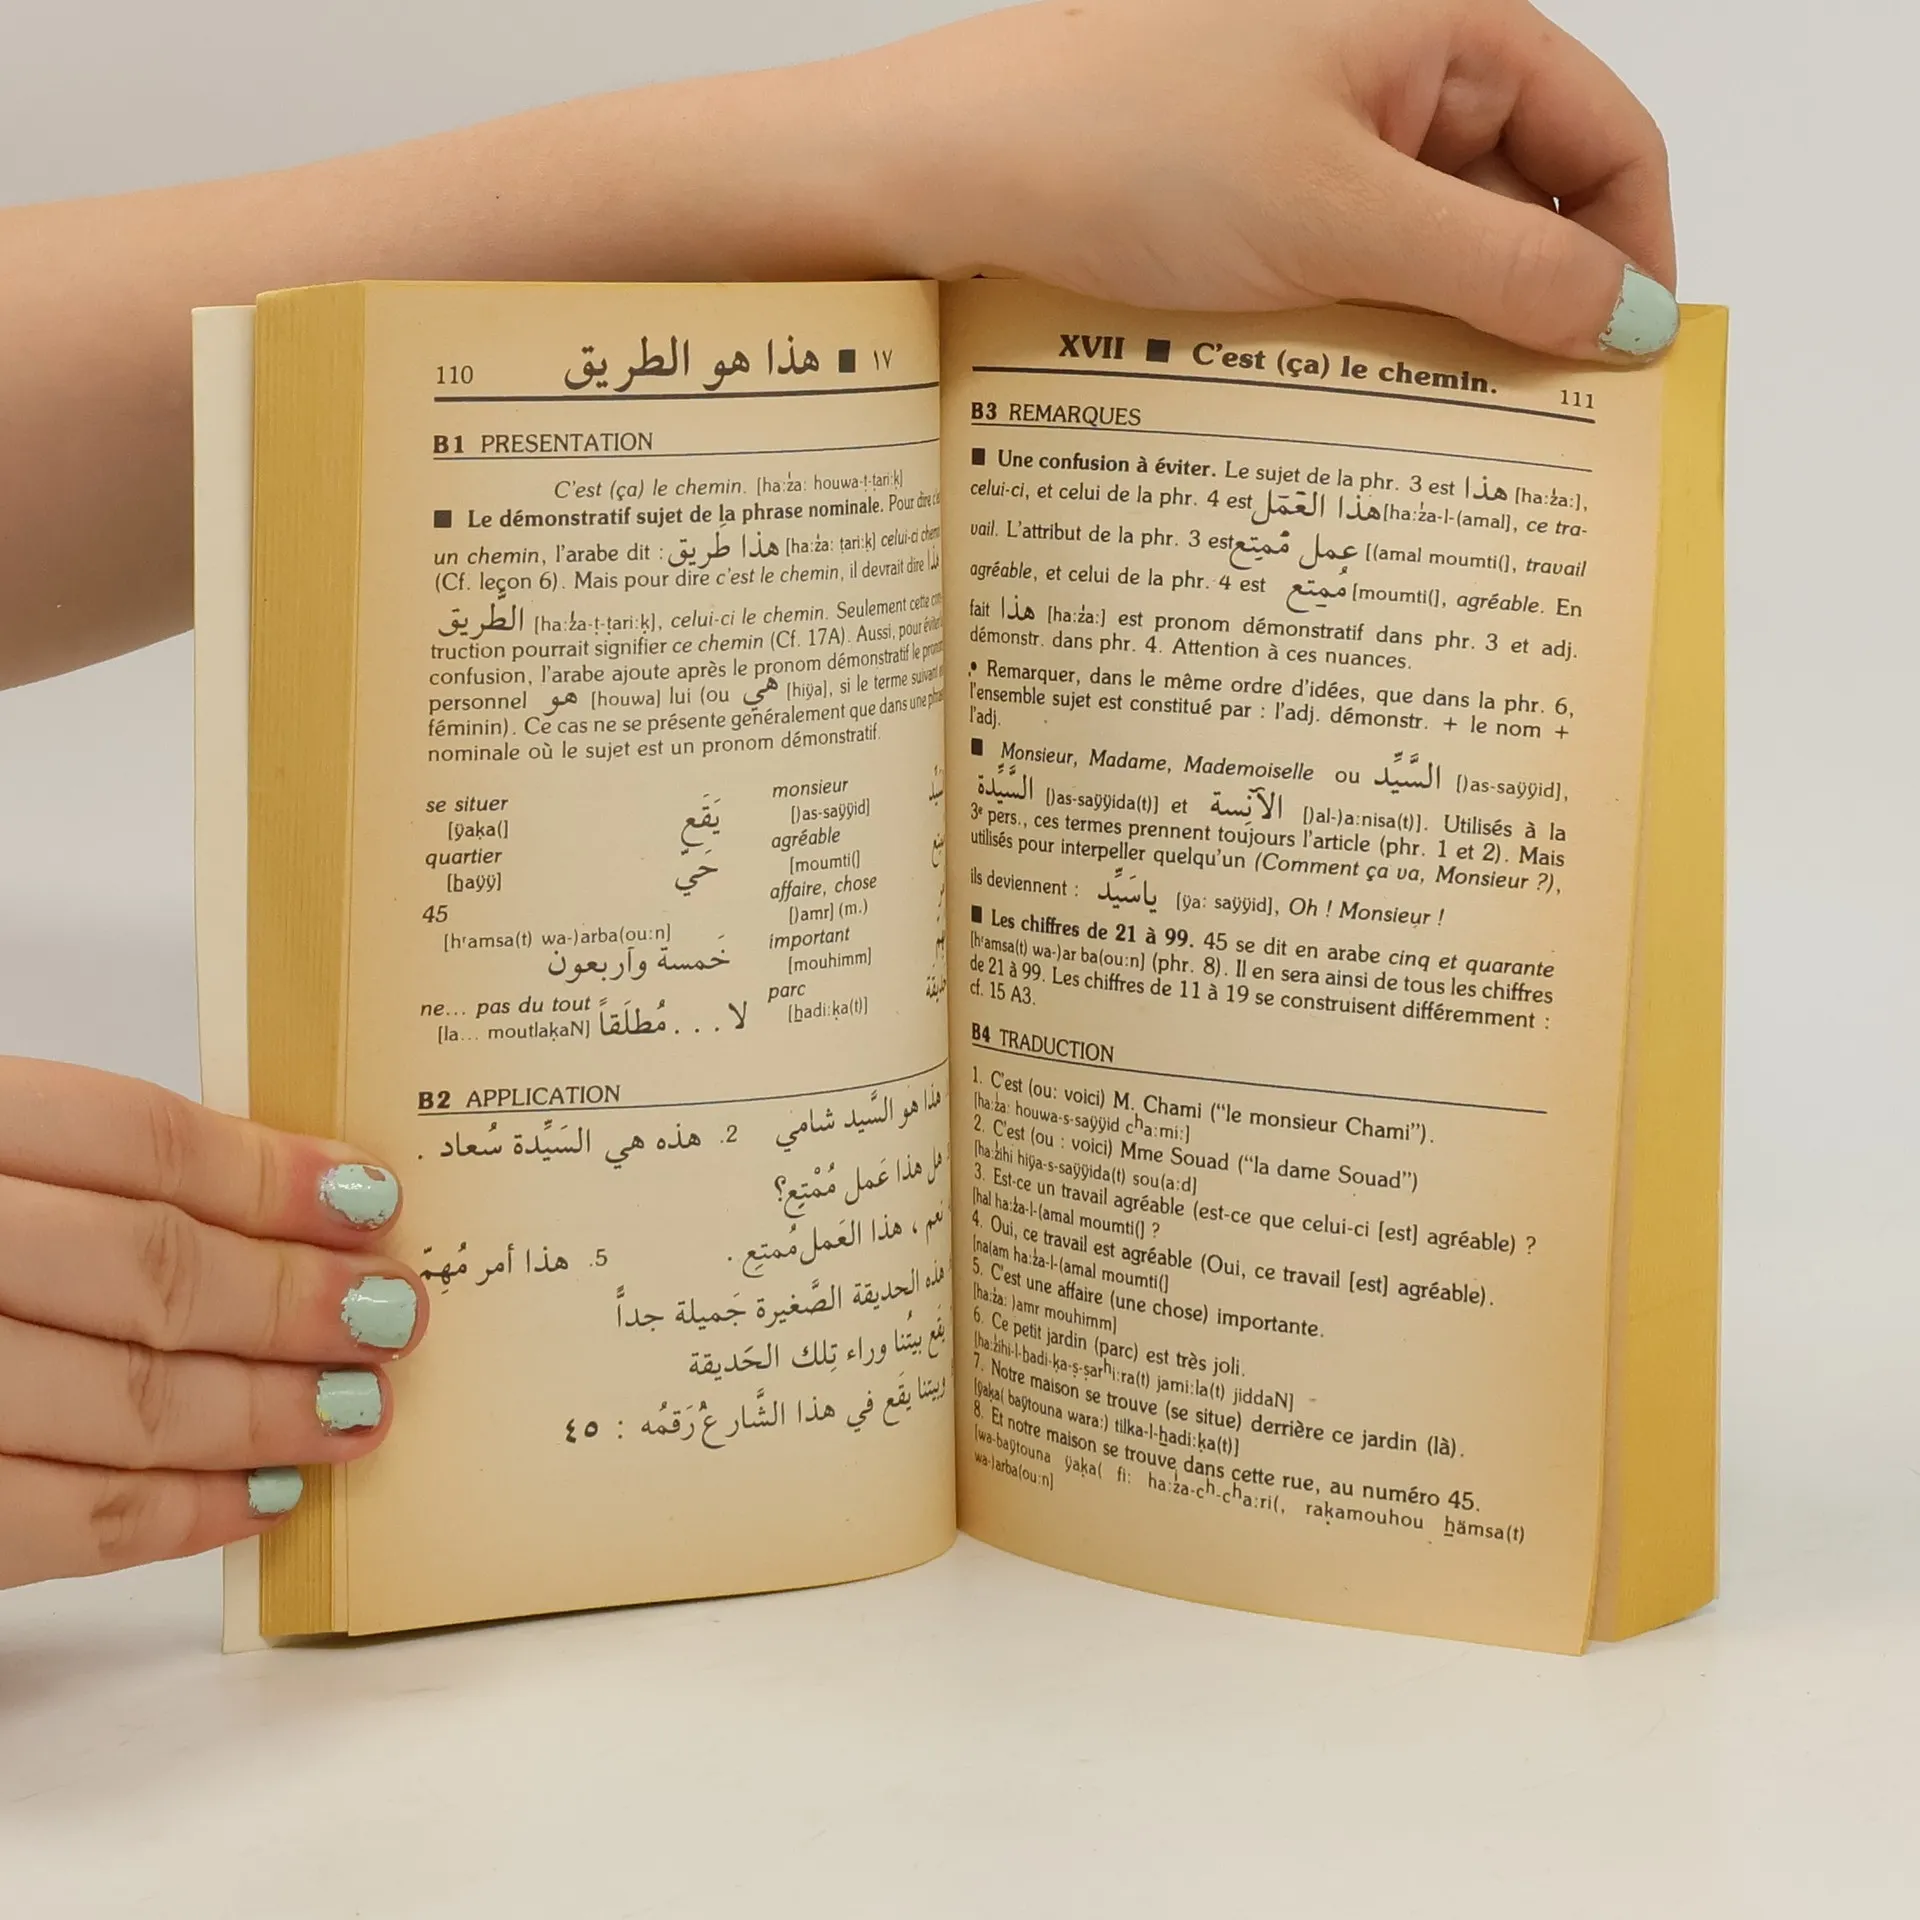 110 هذا هو الطريق ■ ١٧
B1 PRESENTATION
C'est (ça) le chemin. [ha:ża: houwa-ṭ-ṭari:ḳ]
■ Le démonstratif sujet de la phrase nominale. Pour dire c'est
un chemin, l'arabe dit : هذا طَريق [ha:ża: ṭari:ḳ] celui-ci chemin
(Cf. leçon 6). Mais pour dire c'est le chemin, il devrait dire هذا
الطَّريق [ha:ża-ṭ-ṭari:ḳ], celui-ci le chemin. Seulement cette cons-
truction pourrait signifier ce chemin (Cf. 17A). Aussi, pour éviter la
confusion, l'arabe ajoute après le pronom démonstratif le pronom
personnel هو [houwa] lui (ou هي [hiÿa], si le terme suivant est
féminin). Ce cas ne se présente généralement que dans une phrase
nominale où le sujet est un pronom démonstratif.
se situer يَقَع
[ÿaḳa(]
quartier حَيّ
[ẖaÿÿ]
45
[hʳamsa(t) wa-)arba(ou:n]
خَمسة وآربعون
ne... pas du tout لا . . . مُطلَقاً
[la... moutlaḳaN]
monsieur
[)as-saÿÿid]
agréable
[moumti(]
affaire, chose
[)amr] (m.)
important
[mouhimm]
parc
[ẖadi:ḳa(t)]
B2 APPLICATION
هذا هو السَّيد شامي 2. هذه هي السَيِّدة سُعاد .
هل هذا عَمل مُمْتِع؟
نعم ، هذا العَمل مُمتِع . 5. هذا أمر مُهِمّ
هذه الحديقة الصَّغيرة جَميلة جداً
يَقَع بيتُنا وراء تِلك الحَديقة
وبيتنا يقَع في هذا الشَّارع رَقمُه : ٤٥
XVII ■ C'est (ça) le chemin. 111
B3 REMARQUES
■ Une confusion à éviter. Le sujet de la phr. 3 est هذا [ha:ża:],
celui-ci, et celui de la phr. 4 est هذا العَمَل [ha:ża-l-(amal], ce tra-
vail. L'attribut de la phr. 3 est عمل مُمتِع [(amal moumti(], travail
agréable, et celui de la phr. 4 est مُمتِع [moumti(], agréable. En
fait هذا [ha:ża:] est pronom démonstratif dans phr. 3 et adj.
démonstr. dans phr. 4. Attention à ces nuances.
• Remarquer, dans le même ordre d'idées, que dans la phr. 6,
l'ensemble sujet est constitué par : l'adj. démonstr. + le nom +
l'adj.
■ Monsieur, Madame, Mademoiselle ou السَّيِّد [)as-saÿÿid],
السَّيِّدة [)as-saÿÿida(t)] et الآنِسة [)al-)a:nisa(t)]. Utilisés à la
3e pers., ces termes prennent toujours l'article (phr. 1 et 2). Mais
utilisés pour interpeller quelqu'un (Comment ça va, Monsieur ?),
ils deviennent : ياسَيِّد [ÿa: saÿÿid], Oh ! Monsieur !
■ Les chiffres de 21 à 99. 45 se dit en arabe cinq et quarante
[hʳamsa(t) wa-)ar ba(ou:n] (phr. 8). Il en sera ainsi de tous les chiffres
de 21 à 99. Les chiffres de 11 à 19 se construisent différemment :
cf. 15 A3.
B4 TRADUCTION
1. C'est (ou: voici) M. Chami ("le monsieur Chami").
[ha:ża: houwa-s-saÿÿid cha:mi:]
2. C'est (ou : voici) Mme Souad ("la dame Souad")
[ha:żihi hiÿa-s-saÿÿida(t) sou(a:d]
3. Est-ce un travail agréable (est-ce que celui-ci [est] agréable) ?
[hal ha:ża-l-(amal moumti(] ?
4. Oui, ce travail est agréable (Oui, ce travail [est] agréable).
[na(am ha:ża-l-(amal moumti(]
5. C'est une affaire (une chose) importante.
[ha:ża: )amr mouhimm]
6. Ce petit jardin (parc) est très joli.
[ha:żihi-l-ẖadi-ḳa-ṣ-ṣarʰi:ra(t) jami:la(t) jiddaN]
7. Notre maison se trouve (se situe) derrière ce jardin (là).
[ÿaḳa( baÿtouna wara:) tilka-l-ẖadi:ḳa(t)]
8. Et notre maison se trouve dans cette rue, au numéro 45.
[wa-baÿtouna ÿaḳa( fi: ha:ża-ch-cha:ri(, raḳamouhou ẖämsa(t)
wa-)arba(ou:n]